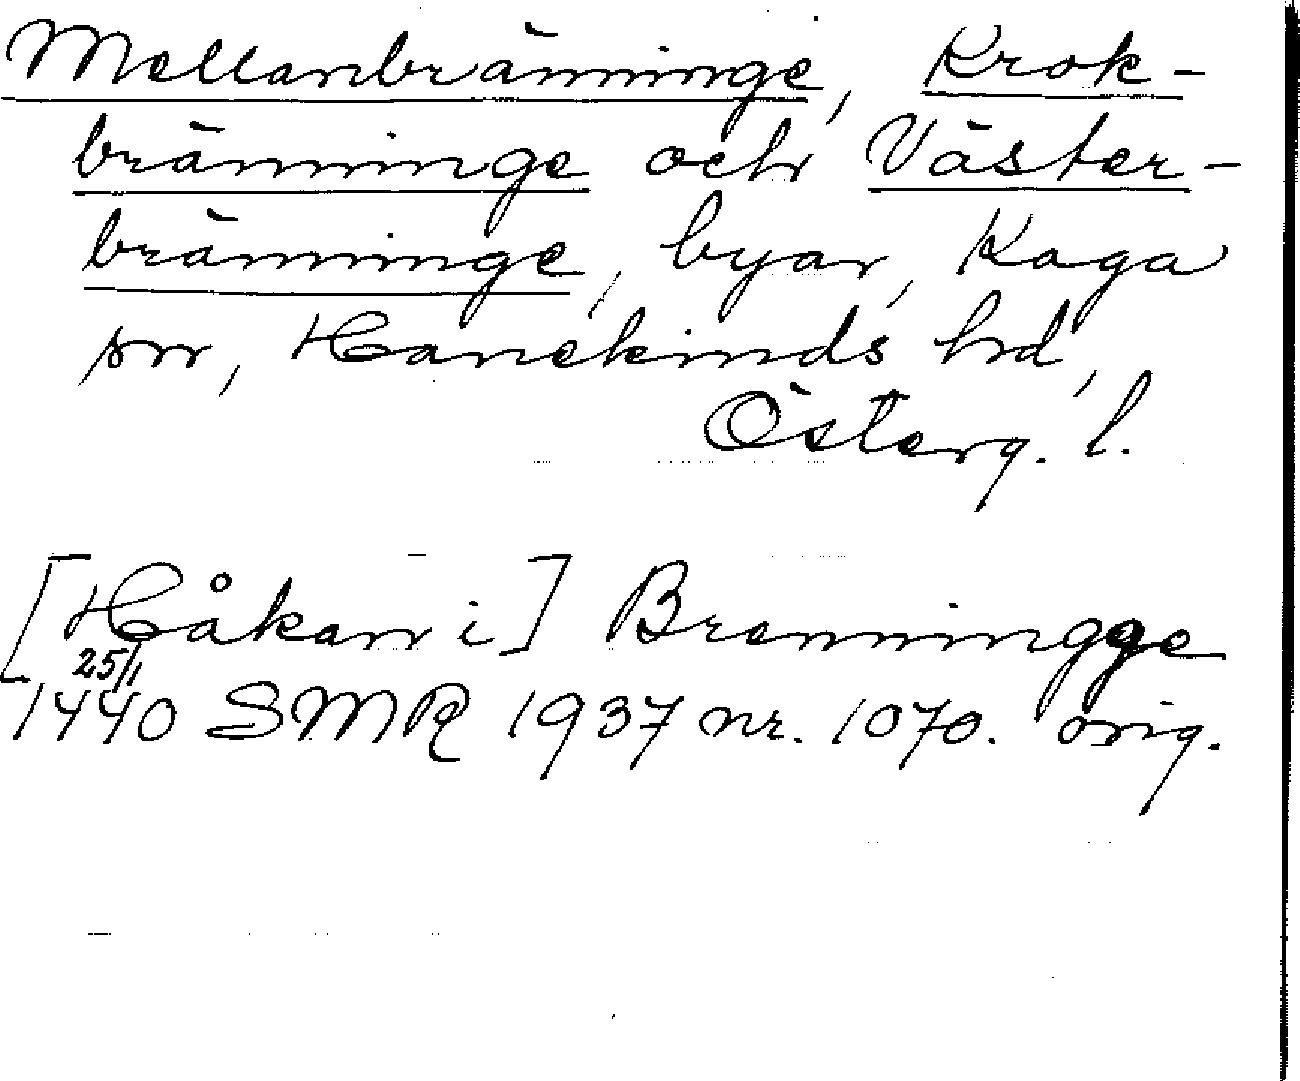 Mellanbränninge, Krok-
bränninge och Väster-
bränninge, byar, Kaga
sn, Hanekinds hd,
Österg. l.
[Håkan i] Brenningge
25/1
1440 SMR 1937 nr. 1070. orig.